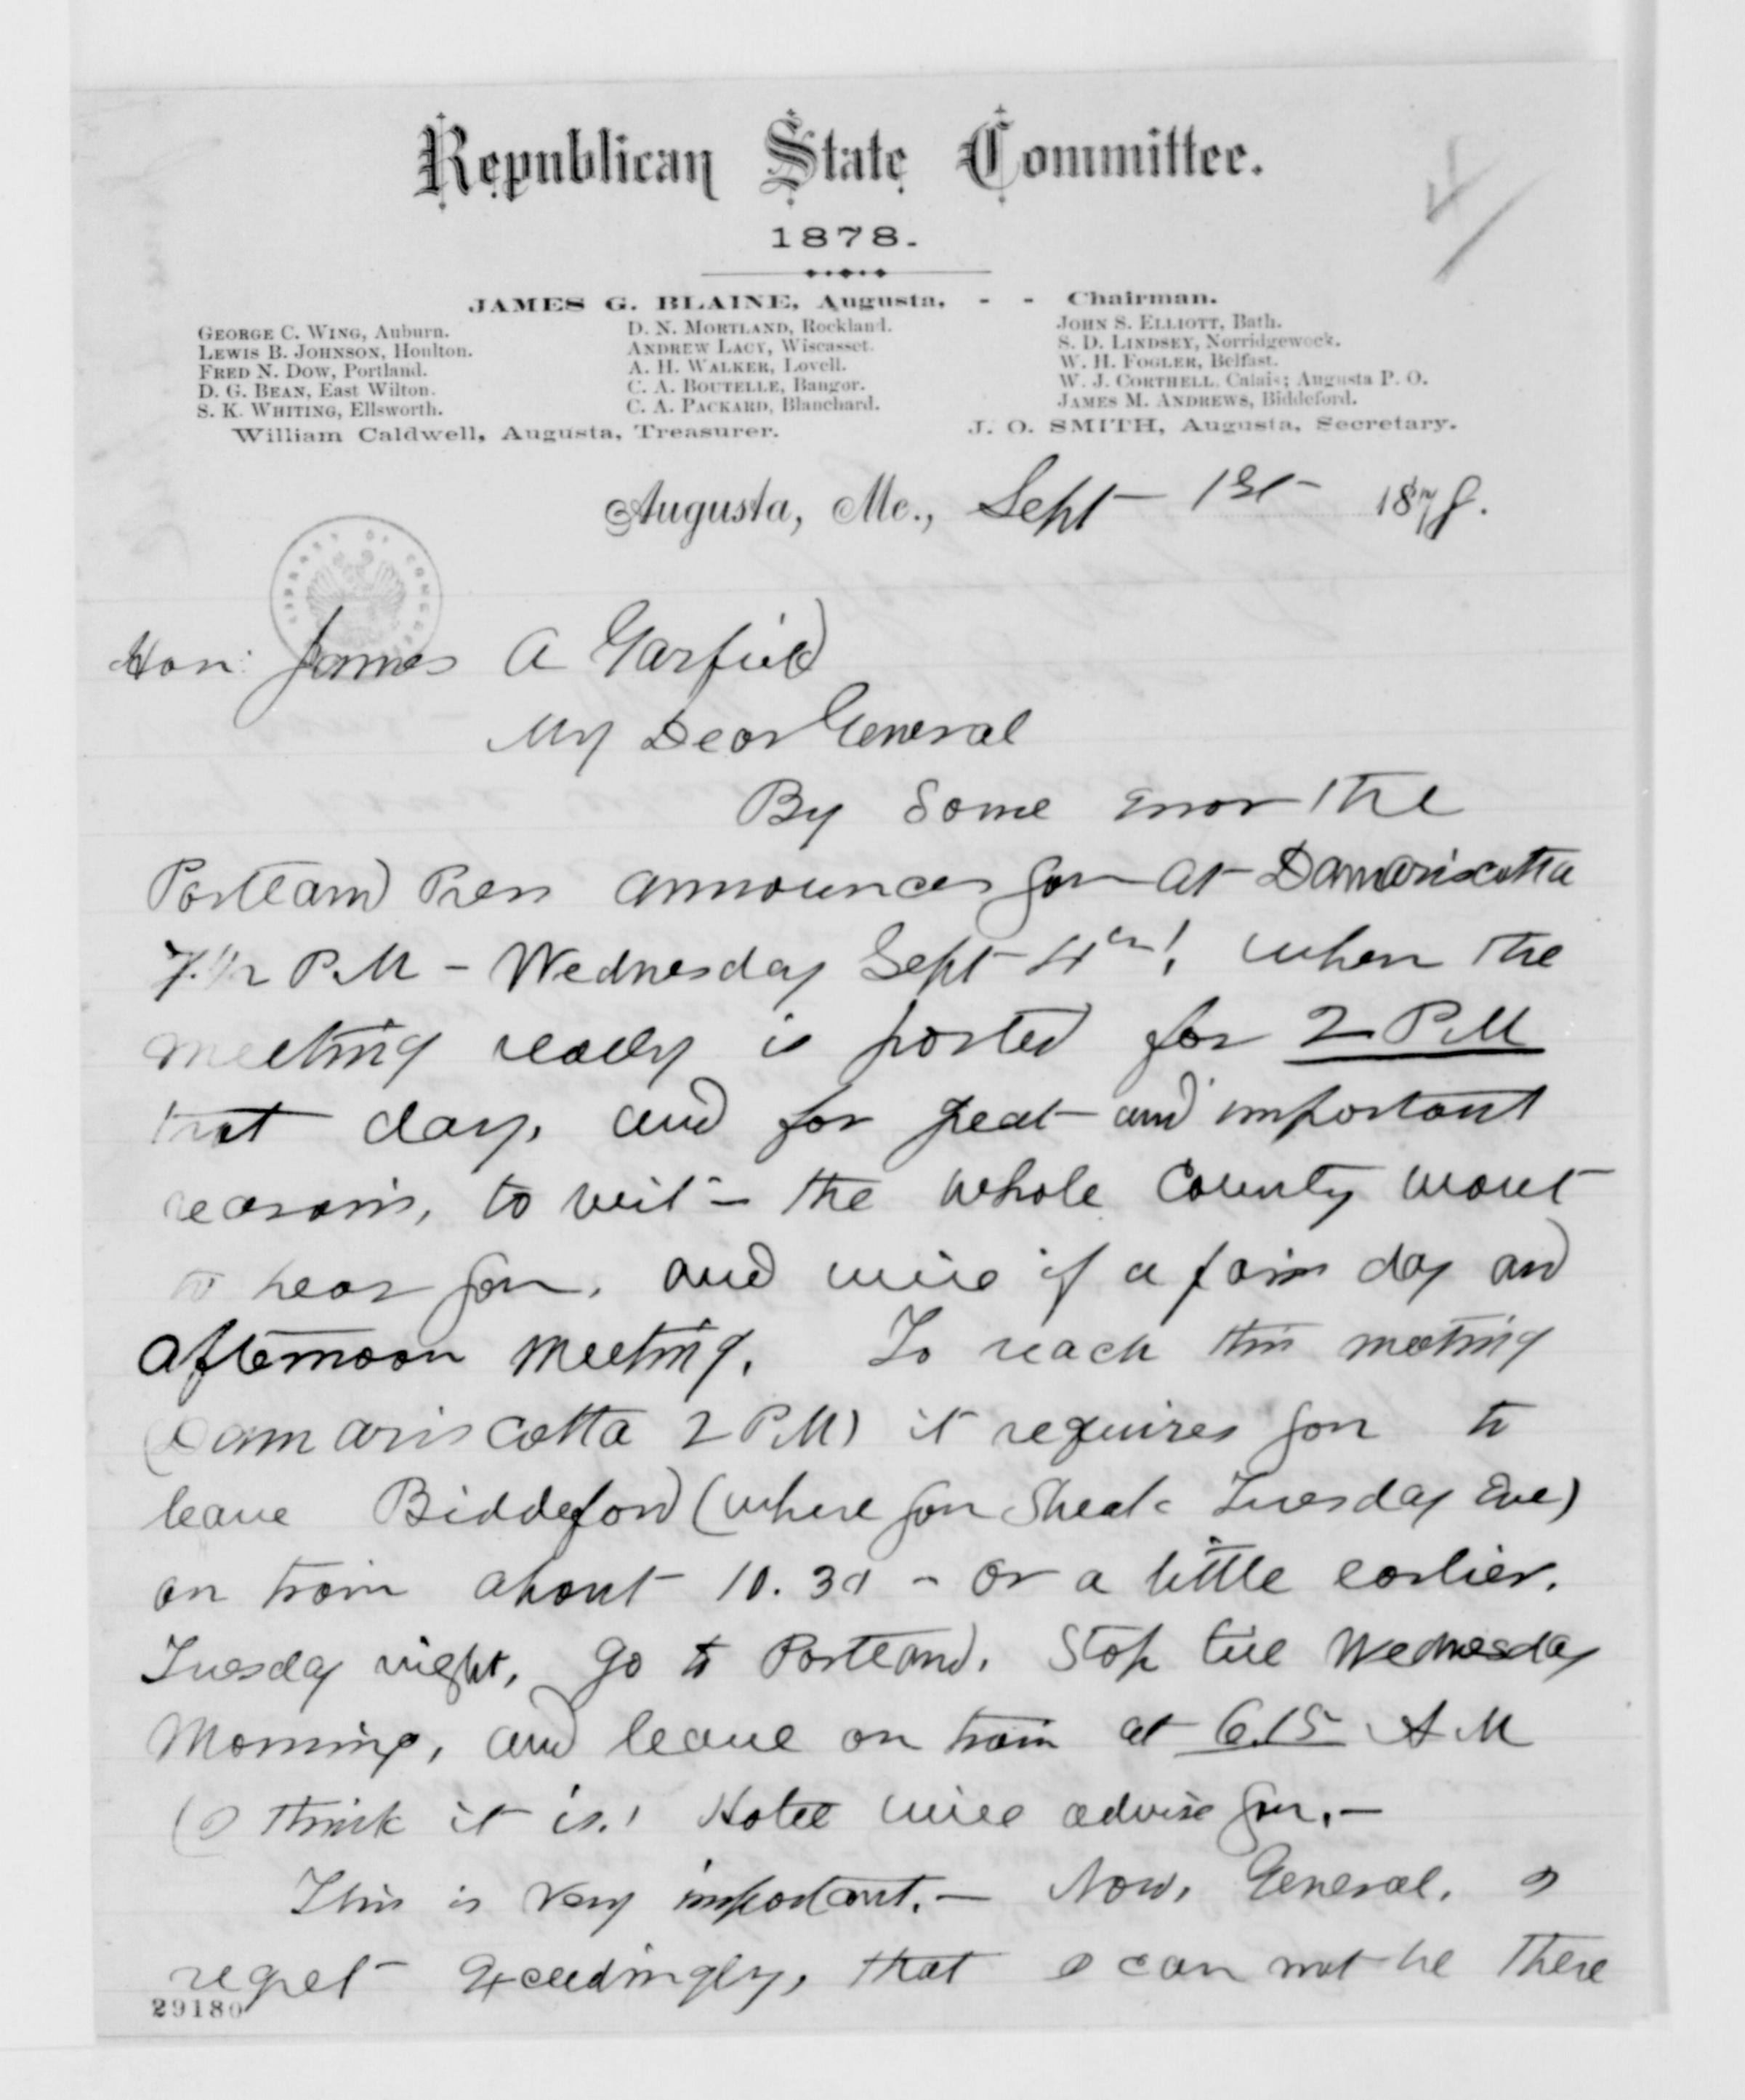 Republican State Committee.
1878.
JAMES G. BLAINE, Augusta, - - Chairman.
GEORGE C. WING, Auburn.
LEWIS B. JOHNSON, Houlton.
FRED N. DOW, Portland.
D. G. BEAN, East Wilton.
S. K. WHITING, Ellsworth.
D. N. MORTLAND, Rockland.
ANDREW LACY, Wiscasset.
A. H. WALKER, Lovell.
C. A. BOUTELLE, Bangor.
C. A. PACKARD, Blanchard.
JOHN S. ELLIOTT, Bath.
S. D. LINDSEY, Norridgewock.
W. H. FOGLER, Belfast.
W. J. CORTHELL, Calais; Augusta P. O.
JAMES M. ANDREWS, Biddeford.
William Caldwell, Augusta, Treasurer.
J. O. SMITH, Augusta, Secretary.
Augusta, Me., Sept 1st 1878.
LIBRARY OF CONGRESS
Hon. James A Garfield
My Dear General
By some error the
Portland Press announces you at Damariscotta
7.1/2 P.M - Wednesday Sept 4th! when the
meeting really is posted for 2 P.M
that day, and for great and important
reasons, to wit - the whole County want
to hear you, and will if a fair day and
afternoon meeting. To reach this meeting
(Damariscotta 2 P.M) it requires you to
leave Biddeford (where you speak Tuesday Eve)
on train about 10.30 - or a little earlier.
Tuesday night, go to Portland. Stop till Wednesday
Morning, and leave on train at 6.15 A M
(I think it is.) Hotel will advise you. -
This is very important. - Now, General, I
regret exceedingly, that I can not be there
29180